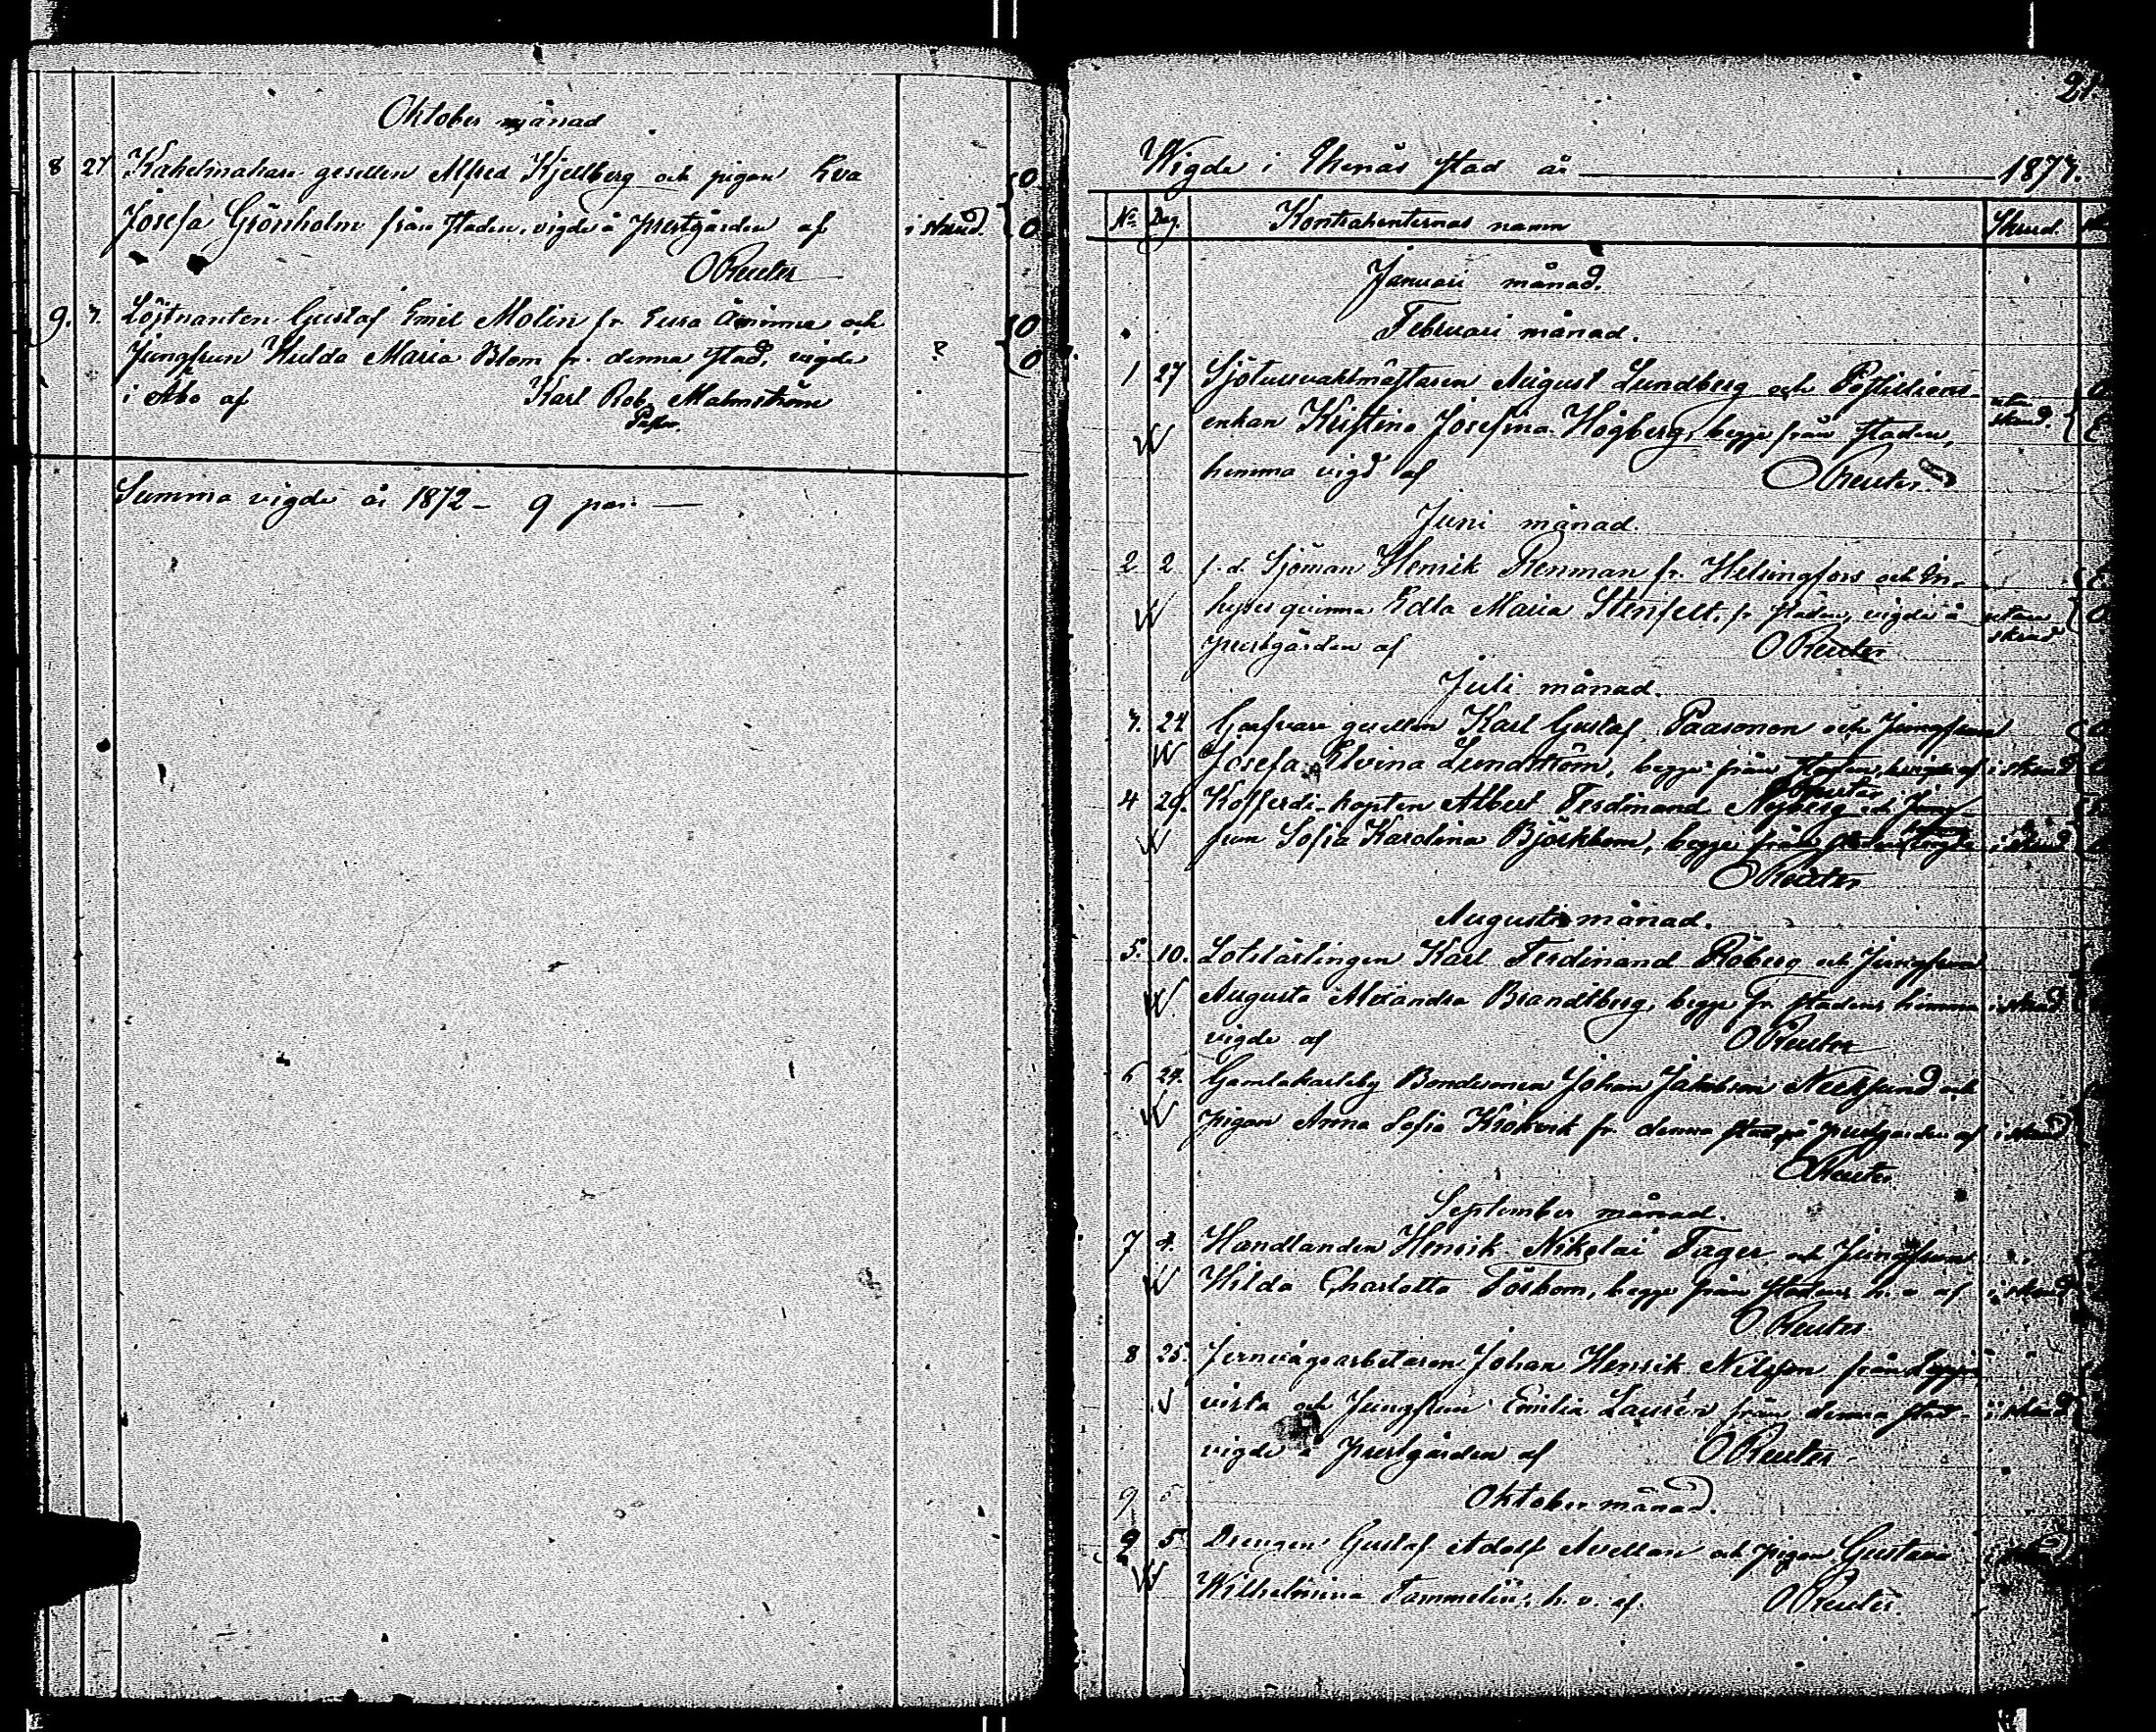 Oktober månad
8 27 Kakelmakare gesellen Alfred Kjellberg och pigan Eva
Josefa Grönholm från staden, vigde å prestgården af i skrud.
O Reuter
9. 7. Löjtnanten Gustaf Emil Molin fr. Eura Åminne och
Jungfrun Hulda Maria Blom fr. denna stad, vigde ?
i Åbo af Karl Rob. Malmström
Pastor.
Summa vigde år 1872 – 9 par. —
21.
Wigde i Ekenäs stad år 1873.
No. Dag. Kontrahenternas namn Skrud.
Januari månad.
Februari månad.
1 27 Sjötullvaktmästaren August Lundberg och Postiljons-
enkan Kristina Josefina Högberg, begge från staden, utan skrud.
hemma vigd af O Reuter.
Juni månad.
2 2 f. d. Sjöman Henrik Renman fr. Helsingfors och In-
hyses qvinna Edla Maria Stenfelt, fr. staden, vigde å utan skrud
prestgården af O Reuter
Juli månad.
3. 24 Garfvare gesellen Karl Gustaf Paasonen och Jungfrun
Josefa Elvina Lundström, begge från staden, af i skrud
O Reuter
4 29. Kofferdi-kapten Albert Ferdinand Nyberg och Jung-
frun Sofia Karolina Björkbom, begge från staden, vigde i skrud
O Reuter
Augusti månad.
5. 10. Lotslärlingen Karl Ferdinand Röberg och Jungfrun
Augusta Alexandra Brandtberg, begge fr. staden, hemma i skrud
vigde af O Reuter
6 24. Gamlakarleby Bondesonen Johan Jakobson och
pigan Anna Sofia fr. denna stad, på prestgården af i skrud
O Reuter
September månad.
7 4. Handlanden Henrik Nikolai Tager och Jungfrun
Hilda Charlotta Törbom, begge från staden, h. v. af i skrud
O Reuter.
8 25. Jernvägsarbetaren Johan Henrik Nilsson från Loppis
och Jungfrun Emilia Laurén från denna stad i skrud
vigde å prestgården af O Reuter.
Oktober månad.
9 5 Drengen Gustaf Adolf Avellan och pigan Gustava
Wilhelmina Tammelin, h. v. af. O Reuter.